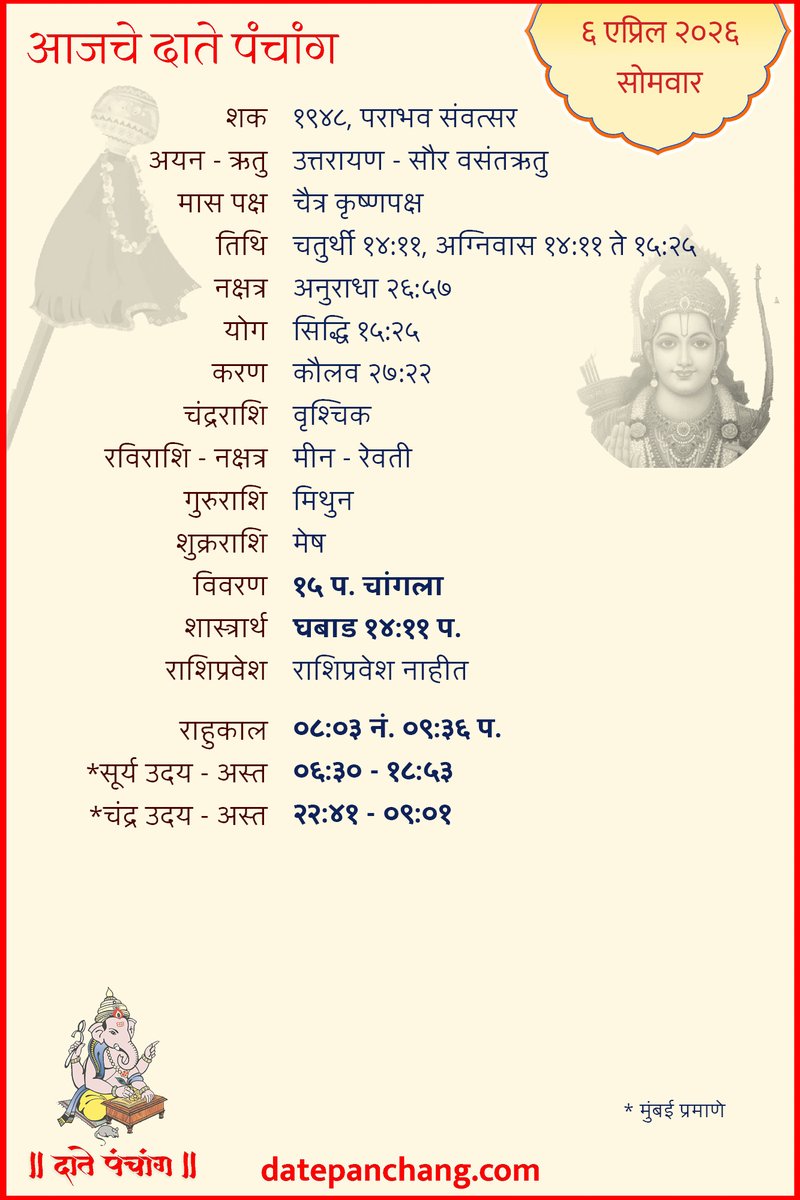 आजचे दाते पंचांग
६ एप्रिल २०२६
सोमवार
शक १९४८, पराभव संवत्सर
अयन - ऋतु उत्तरायण - सौर वसंतऋतु
मास पक्ष चैत्र कृष्णपक्ष
तिथि चतुर्थी १४:११, अग्निवास १४:११ ते १५:२५
नक्षत्र अनुराधा २६:५७
योग सिद्धि १५:२५
करण कौलव २७:२२
चंद्रराशि वृश्चिक
रविराशि - नक्षत्र मीन - रेवती
गुरुराशि मिथुन
शुक्रराशि मेष
विवरण १५ प. चांगला
शास्त्रार्थ घबाड १४:११ प.
राशिप्रवेश राशिप्रवेश नाहीत
राहुकाल ०८:०३ नं. ०९:३६ प.
*सूर्य उदय - अस्त ०६:३० - १८:५३
*चंद्र उदय - अस्त २२:४१ - ०९:०१
* मुंबई प्रमाणे
॥ दाते पंचांग ॥
datepanchang.com